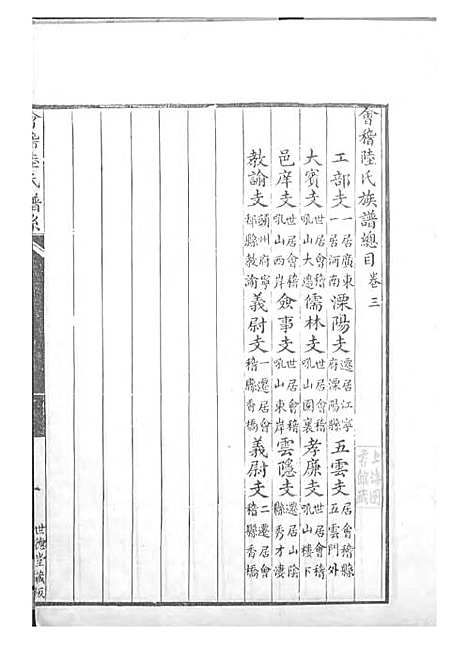 會稽陸氏族譜總目 卷三
工部支 一居廣東一居河南 溧陽支 遷居江寧府溧陽縣 五雲支 居會稽縣五雲門外
大賓支 世居會稽吼山大邊 儒林支 世居會稽吼山園裏 孝廉支 世居會稽吼山樓下
邑庠支 世居會稽吼山西岸 僉事支 世居會稽吼山東岸 雲隱支 遷居山陰縣秀才漊
教諭支 潁州府寧縣教諭 義尉支 一遷居會稽縣香橋 義尉支 二遷居會稽縣香橋
會稽陸氏譜系
世德堂藏板
上海圖書館藏